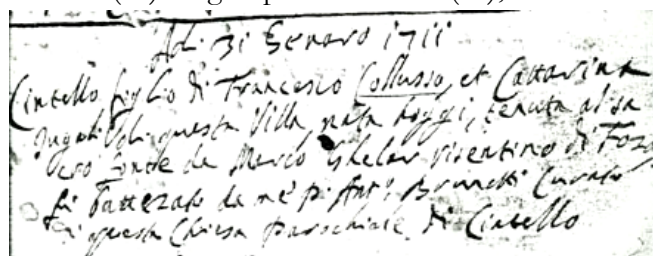 Adi 31 Genaro 1711
Cintello figlio di Francesco Collusso, et Cattarina
Jugali di questa Villa, nata hoggi, tenuta al sa
cro fonte da Marco visentino di
fù Battezato da mè pr Antº Brunetti Curato
di questa Chiesa Parochiale di Cintello